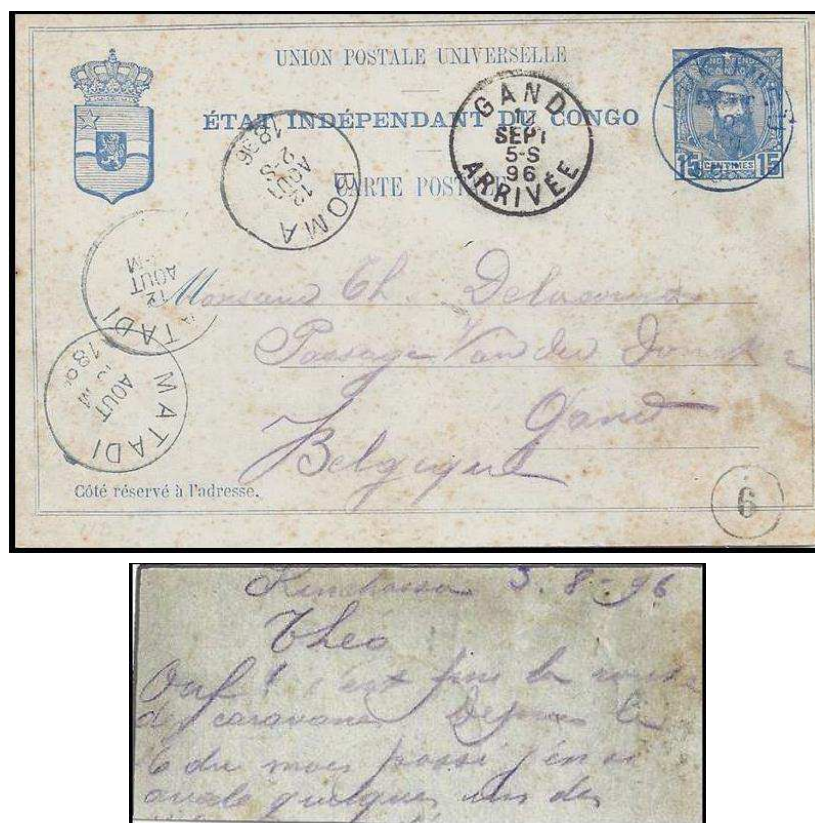 UNION POSTALE UNIVERSELLE
ÉTAT INDÉPENDANT DU CONGO
CARTE POSTALE
GAND
17
SEPT
5-S
96
ARRIVÉE
15 CENTIMES 15
BOMA
13
AOUT
2-S
1896
MATADI
12
AOUT
MATADI
AOUT
189
Th. Delacourt
Passage Van der Donck
Gand
Belgique
Côté réservé à l'adresse.
6
Kinchassa 3.8-96
Théo
Ouf! c'est fini la route
des caravanes Depuis le
6 du mois passé j'en ai
avalé quelques uns des